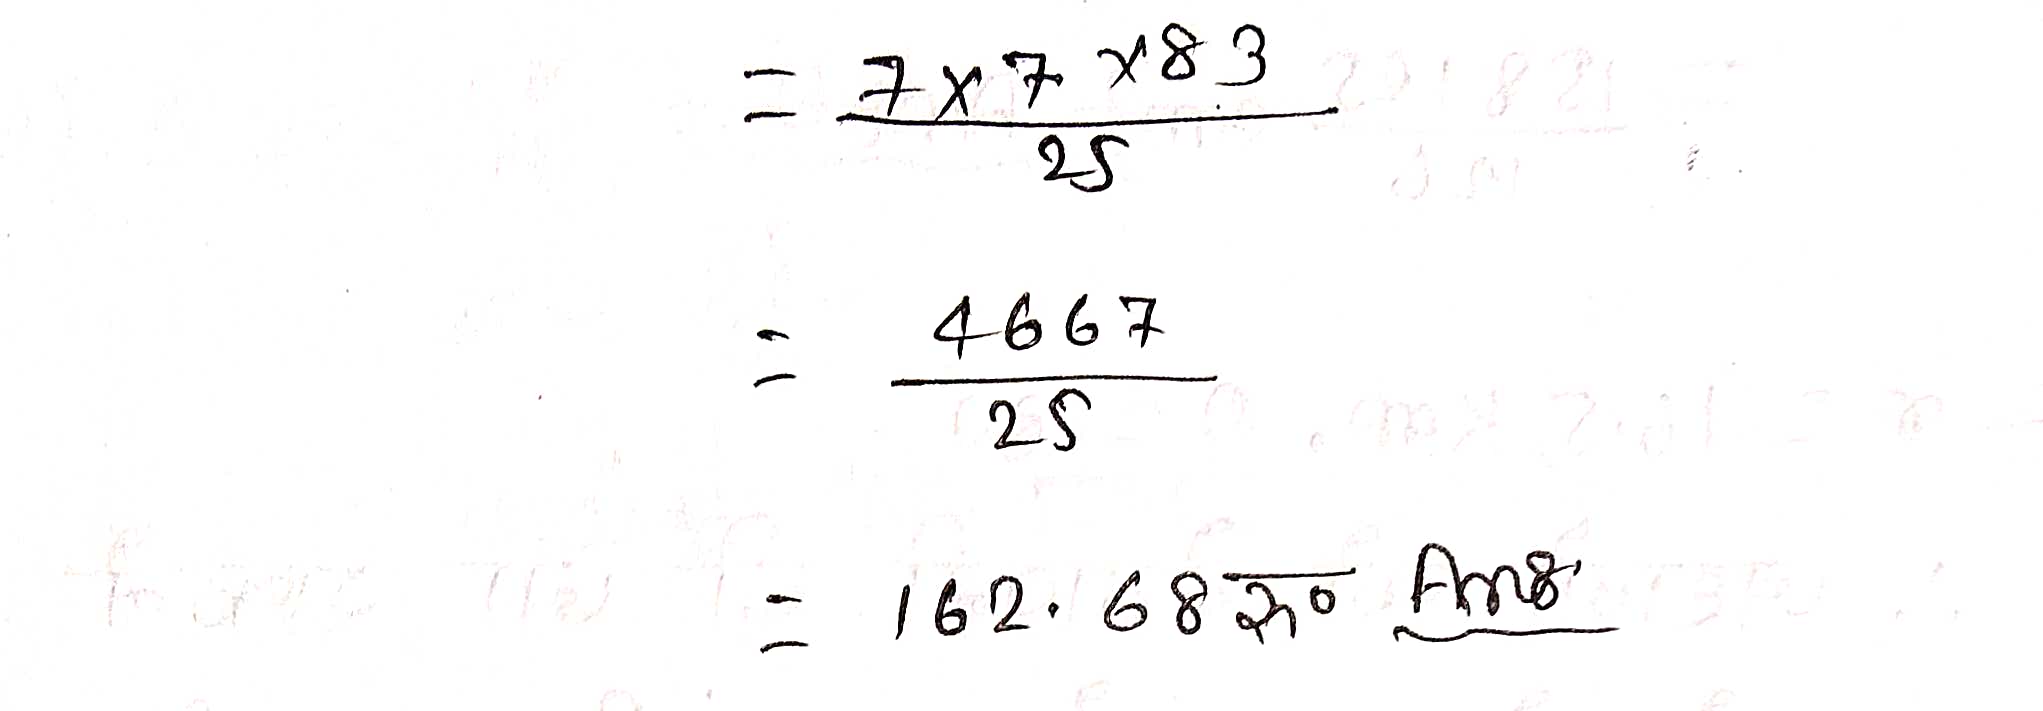 = 7 x 7 x 83
25
= 4667
25
= 162.68 रू० Ans